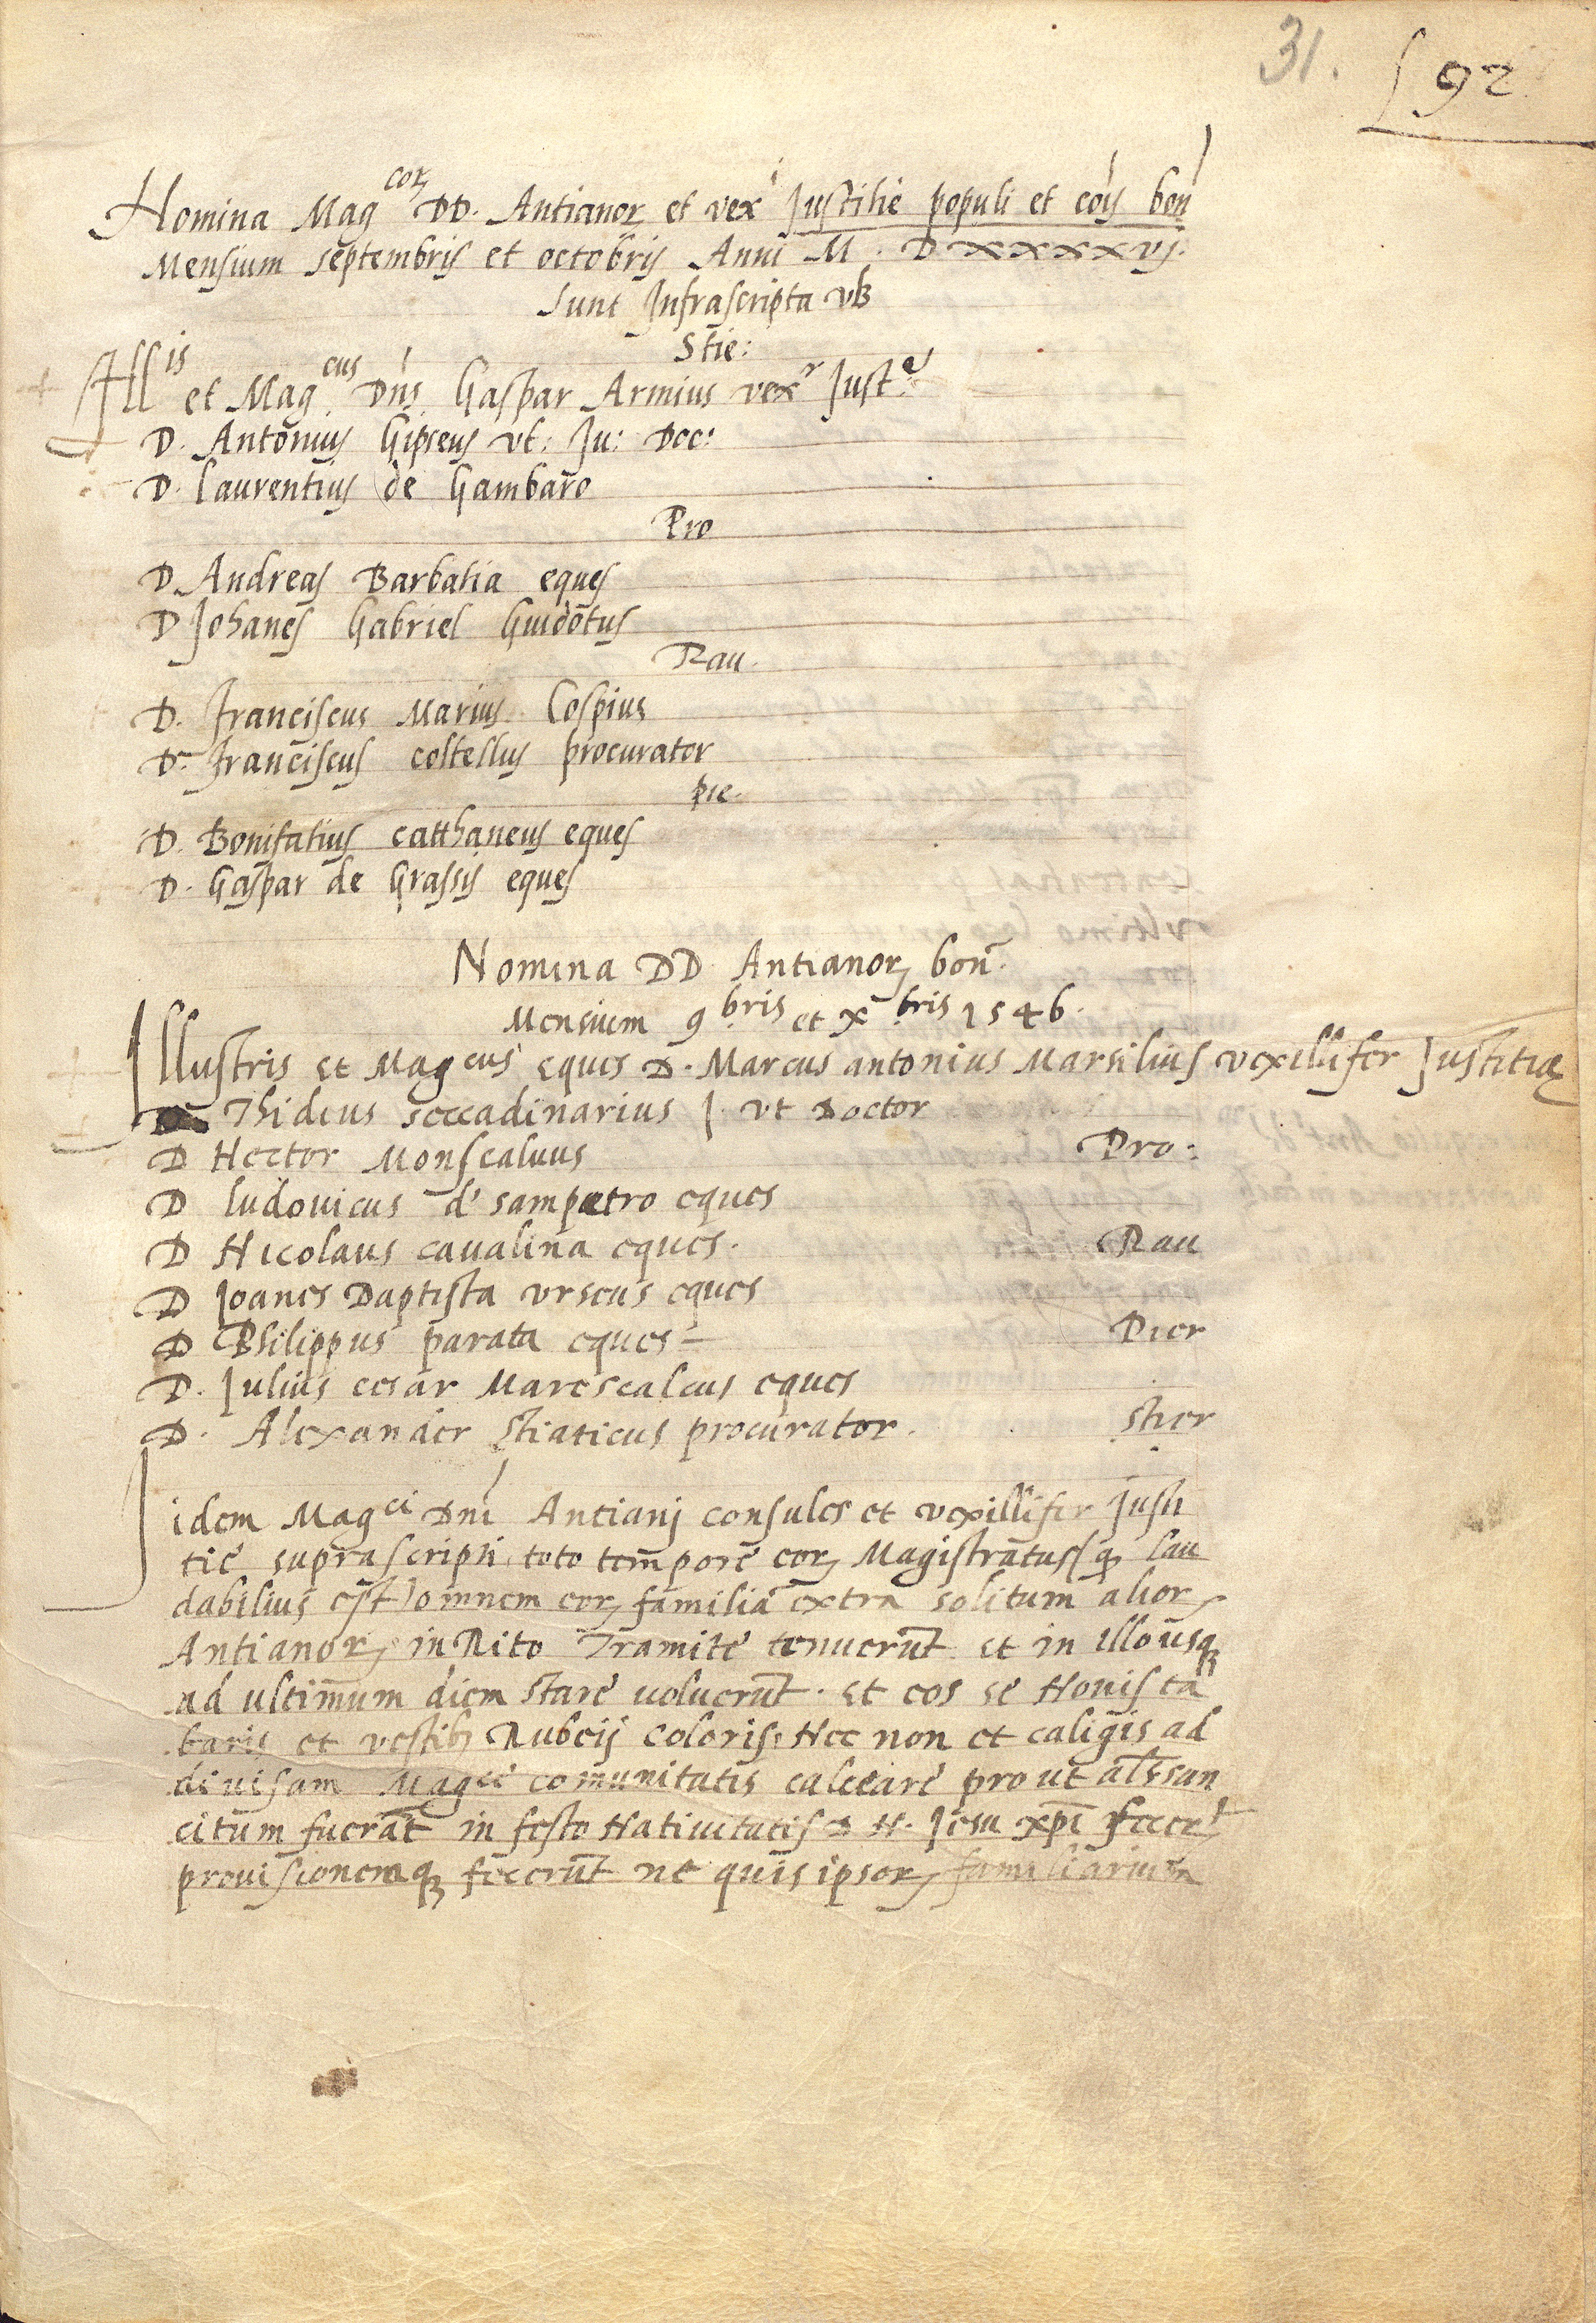 31. 92
Nomina Mag^(coꝝ) DD. Antianoꝝ et vex^i Justitie populi et cois bon
Mensium septembris et octobris Anni M. D xxxxvj.
Sunt Infrascripta vꝫ
Stie:
Ill^(is) et Mag^(cus) Dns Gaspar Armius vex^r Just^e
D. Antonius Gipseus vt: Ju: Doc:
D. Laurentius de Gambaro
Pro
D. Andreas Barbatia eques
D Johanes Gabriel Guidotus
Rau.
D. Franciscus Marius Cospius
D. Franciscus costellus procurator
pie.
D. Bonifatius catthaneus eques
D. Gaspar de Grassis eques
Nomina DD Antianoꝝ bon̄.
Mensium 9^(bris) et x^(bris) 1546.
Illustris et Mag^(cus) eques D. Marcus antonius Marsilius vexillifer Justitiæ
D Thideus seccadinarius J. vt Doctor
D Hector Monscaluus Pro:
D ludouicus d' sampetro eques
D Nicolaus caualina eques. Rau
D Joanes Baptista vrseus eques
D Philippus parata eques Pier
D. Julius cesar Marescalcus eques
D. Alexander stiaticus procurator. stier
idem Mag^(ci) Dni Antianj consules et vexillifer Justi
tie suprascripti toto tempore eoꝝ Magistratus (qꝫ lau
dabilius est) omnem eoꝝ familiā extra solitum alioꝝ
Antianoꝝ in Rito Tramite tenuerūt et in illousqꝫ
ad ultimum diem stare uoluerūt. et eos se Nouis ta
baris et vestibꝫ Rubeij coloris. Nec non et caligis ad
diuisam Mag^(ce) comunitatis calceare prout als san
citum fuerat in festo Natiuitatis D N. Jesu xpi fecerᵗ
prouisionemqꝫ fecerūt ne quis ipsoꝝ familiarium